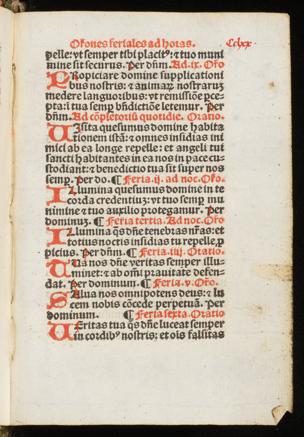 Orōnes feriales ad horas. Cclxx.
pelle: vt semper tibi placitꝰ: ⁊ tuo muni
mine sit securus. Per dn̄m. Ad .ix. Oro
PRopiciare domine supplicationi
bus nostris: ⁊ animaꝝ nostraruꝫ
medere languoribus: vt remissiōe ꝑce
pta: i tua semꝑ bn̄dictiōe letemur. Per
dn̄m. Ad cōpletoriū quotidie. Oratio.
UIsita quesumus domine habita
tionem istā: ⁊ omnes insidias ini
mici ab ea longe repelle: et angeli tui
sancti habitantes in ea nos in pace cu
stodiant: ⁊ benedictio tua sit super nos
semꝑ. Per do. ¶ Feria .ij. ad noc. Oro.
ILlumina quesumus domine in te
corda credentiuꝫ: vt tuo semꝑ mu
nimine ⁊ tuo auxilio protegamur. Per
dominuꝫ. ¶ Feria tertia. Ad noc. Oro
ILlumina q̄s dn̄e tenebras nr̄as: et
totius noctis insidias tu repelle ꝓ
picius. Per dn̄m. ¶ Feria .iiij. Oratio.
UIa nos dn̄e veritas semper illu-
minet: ⁊ ab om̄i prauitate defen-
dat. Per dominum. ¶ Feria .v. Oro.
SAlua nos omnipotens deus: ⁊ lu
cem nobis cōcede perpetuā. Per
dominum. ¶ Feria sexta. Oratio
UEritas tua q̄s dn̄e luceat semper
in cordibꝰ nostris: et ois falsitas